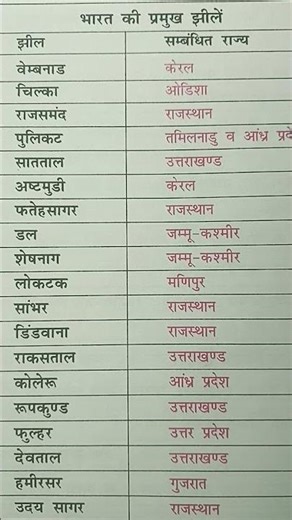 भारत की प्रमुख झीलें
झील सम्बंधित राज्य
वेम्बनाड केरल
चिल्का ओडिशा
राजसमंद राजस्थान
पुलिकट तमिलनाडु व आंध्र प्रदे
सातताल उत्तराखण्ड
अष्टमुडी केरल
फतेहसागर राजस्थान
डल जम्मू-कश्मीर
शेषनाग जम्मू-कश्मीर
लोकटक मणिपुर
सांभर राजस्थान
डिंडवाना राजस्थान
राकसताल उत्तराखण्ड
कोलेरू आंध्र प्रदेश
रूपकुण्ड उत्तराखण्ड
फुल्हर उत्तर प्रदेश
देवताल उत्तराखण्ड
हमीरसर गुजरात
उदय सागर राजस्थान